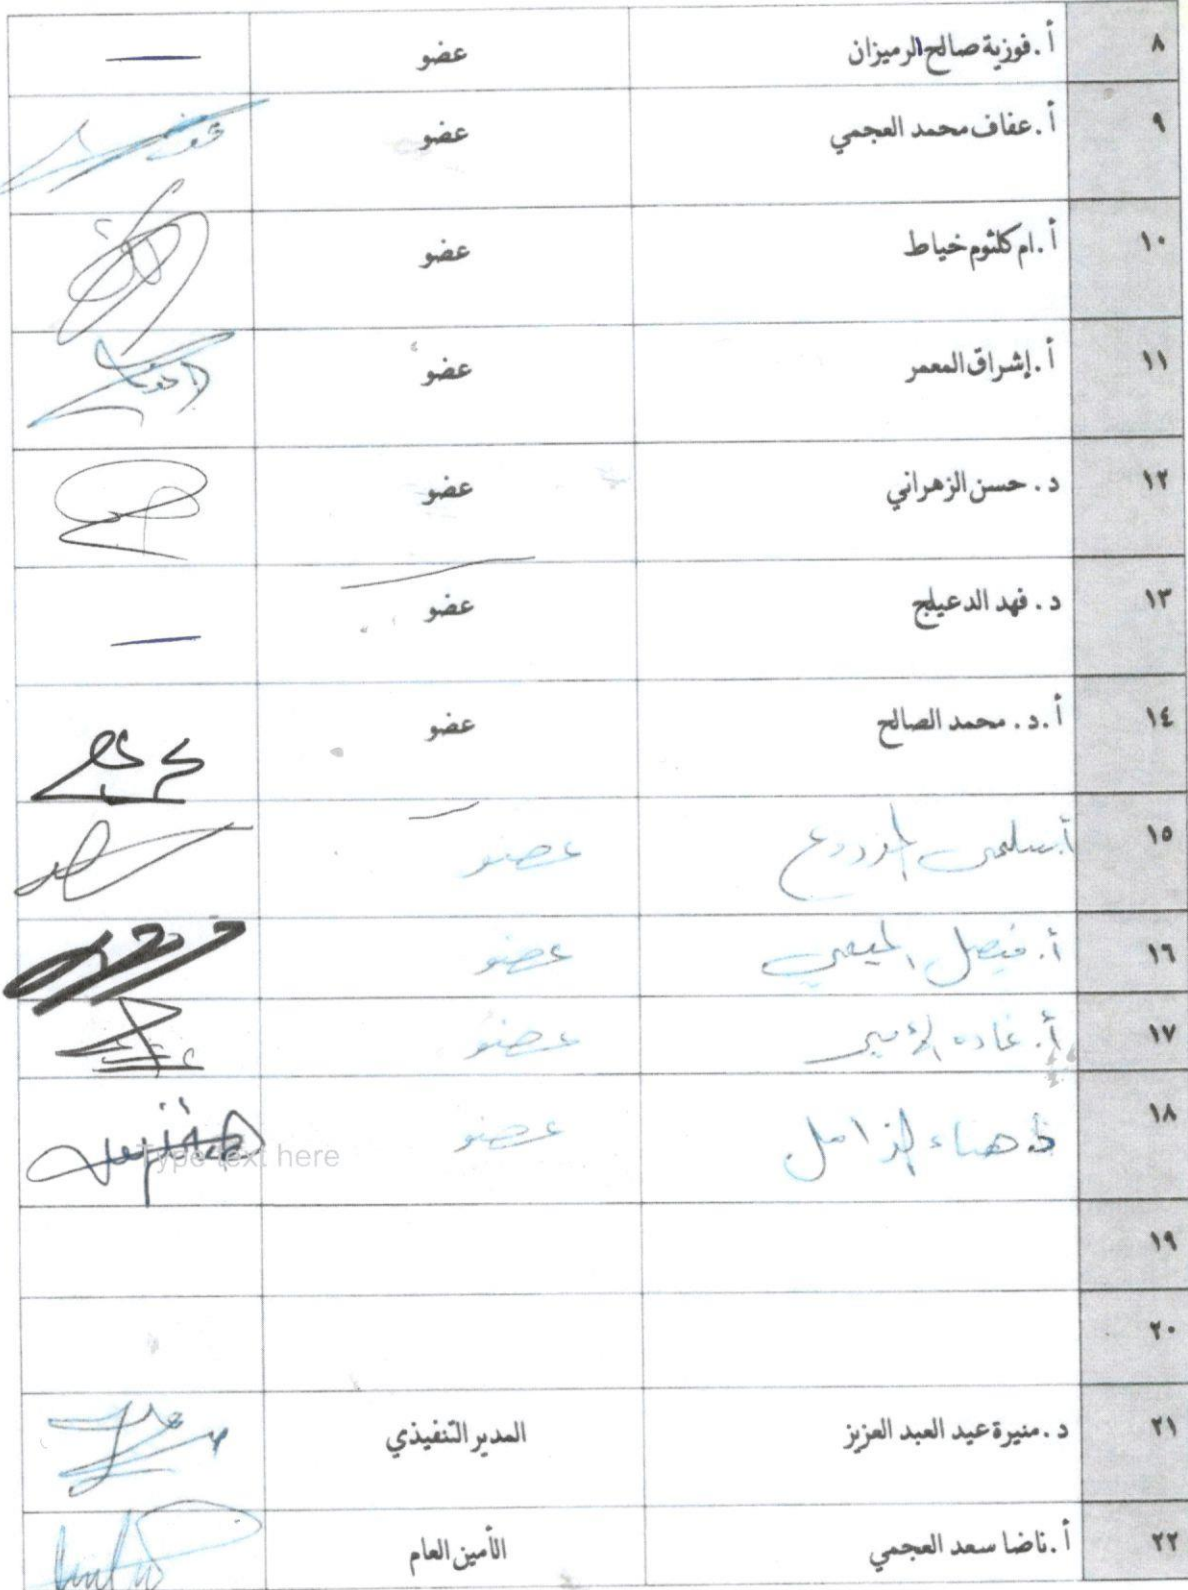 ٨ أ.فوزية صالح الرميزان عضو —
٩ أ.عفاف محمد العجمي عضو
١٠ أ.ام كلثوم خياط عضو
١١ أ.إشراق المعمر عضو
١٢ د. حسن الزهراني عضو
١٣ د. فهد الدعيلج عضو —
١٤ أ.د. محمد الصالح عضو
١٥ أ.سلمى عضو
١٦ أ. فيصل عضو
١٧ أ. غاده الأمير عضو
١٨ هناء الزامل عضو Type text here
١٩
٢٠
٢١ د.منيرة عيد العبد العزيز المدير التنفيذي
٢٢ أ.ناضا سعد العجمي الأمين العام